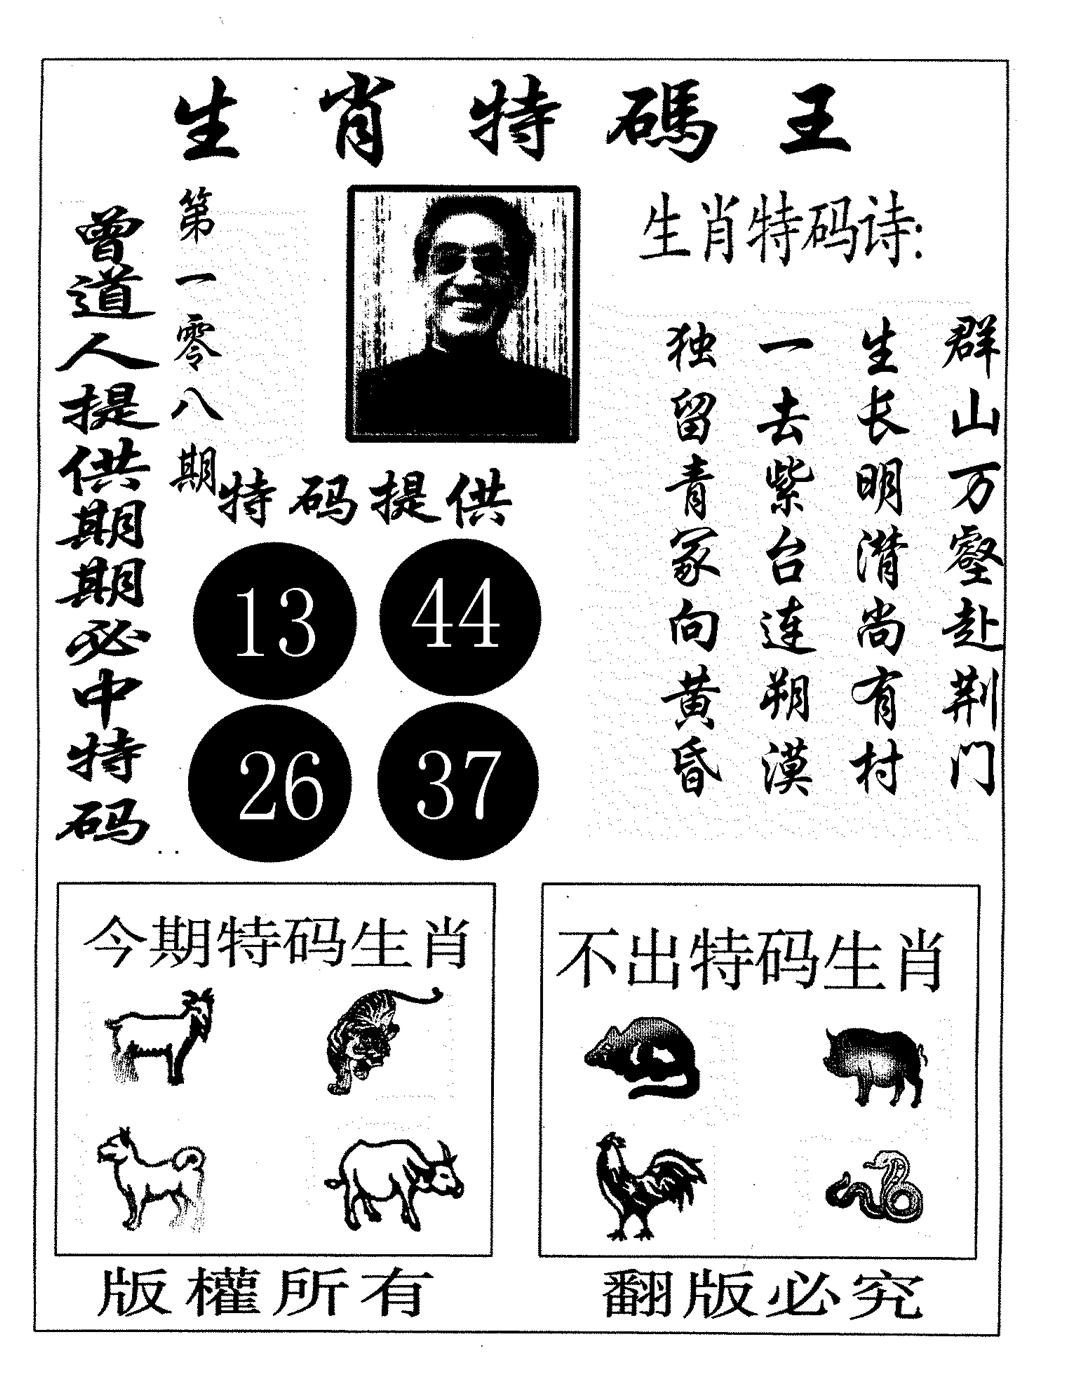 生肖特碼王
曾道人提供期期必中特码
第一零八期
生肖特码诗:
群山万壑赴荆门
生长明潸尚有村
一去紫台连朔漠
独留青冢向黄昏
特码提供
13 44
26 37
今期特码生肖
不出特码生肖
版權所有
翻版必究